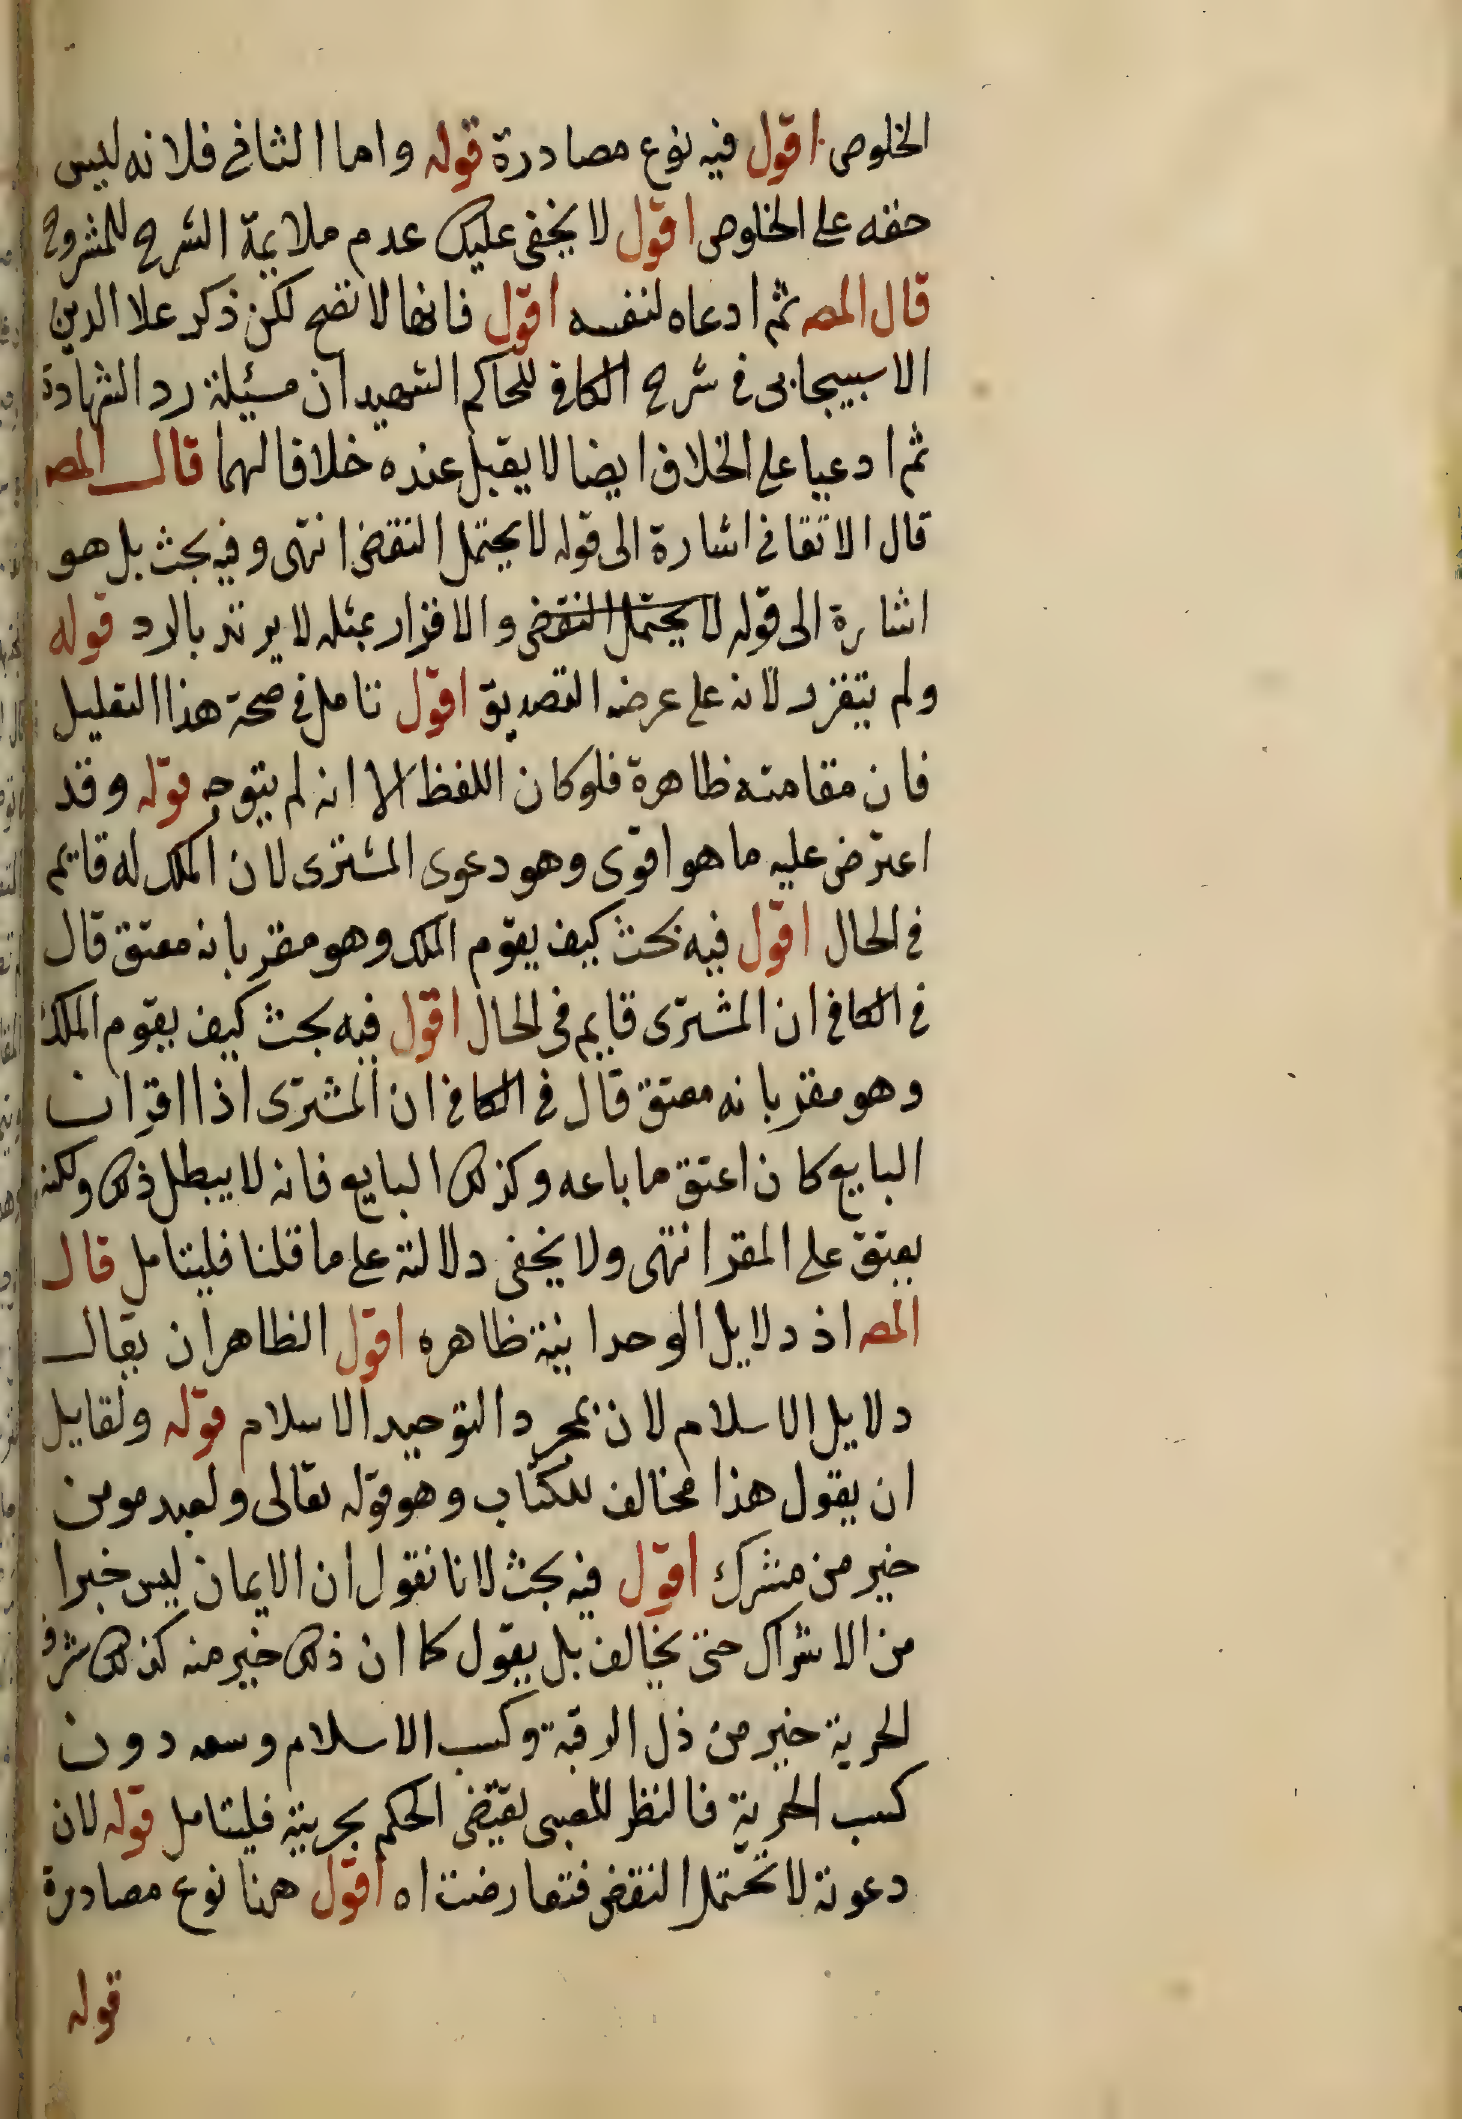 الخلوص اقول فيه نوع مصادرة قوله واما الثاني فلانه ليس
حقه على الخلوص اقول لا يخفى عليك عدم ملايمة الشرح للمشروح
قال المص ثم ادعاه لنفسه اقول فانها لا تصح لكن ذكر علا الدين
الاسبيجابى فى شرح الكافى للحاكم الشهيد ان مسئلة رد الشهادة
ثم ادعيا على الخلاف ايضا لا يقبل عنده خلافا لهما قال المص
قال الاتقانى اشارة الى قوله لا يحتمل النقض انتهى وفيه بحث بل هو
اشارة الى قوله لا يحتمل النقض والاقرار بمثله لا يرتد بالرد قوله
ولم يتفرد لانه على عرضه التصديق اقول تامل فى صحة هذا التعليل
فان مقامته ظاهرة فلو كان اللفظ الا انه لم يتوجه قوله وقد
اعترض عليه ما هو اقوى وهو دعوى المشترى لان الملك له قايم
فى الحال اقول فيه بحث كيف يقوم الملك وهو مقر بانه معتق قال
فى الكافى ان المشترى قايم فى الحال اقول فيه بحث كيف يقوم الملك
وهو مقر بانه معتق قال فى الكافى ان المشترى اذا اقر ان
البايع كان اعتق ما باعه وكذلك البايع فانه لا يبطل ذلك ولكنه
يعتق على المقر انتهى ولا يخفى دلالته على ما قلنا فليتامل قال
المص اذ دلايل الوحدانية ظاهره اقول الظاهر ان يقال
دلايل الاسلام لان بمجرد التوحيد الاسلام قوله ولقايل
ان يقول هذا مخالف للكتاب وهو قوله تعالى ولعبد مومن
خير من مشرك اقول فيه بحث لانا نقول ان الايمان ليس خيرا
من الاشراك حتى يخالف بل يقول كما ان ذلك خير منه كذلك شرف
الحرية خير من ذل الرقية وكسب الاسلام وسعه دون
كسب الحرية فالنظر للصبى يقتضى الحكم بحريته فليتامل قوله لان
دعوته لا تحتمل النقض فتعارضت اه اقول هنا نوع مصادرة
قوله